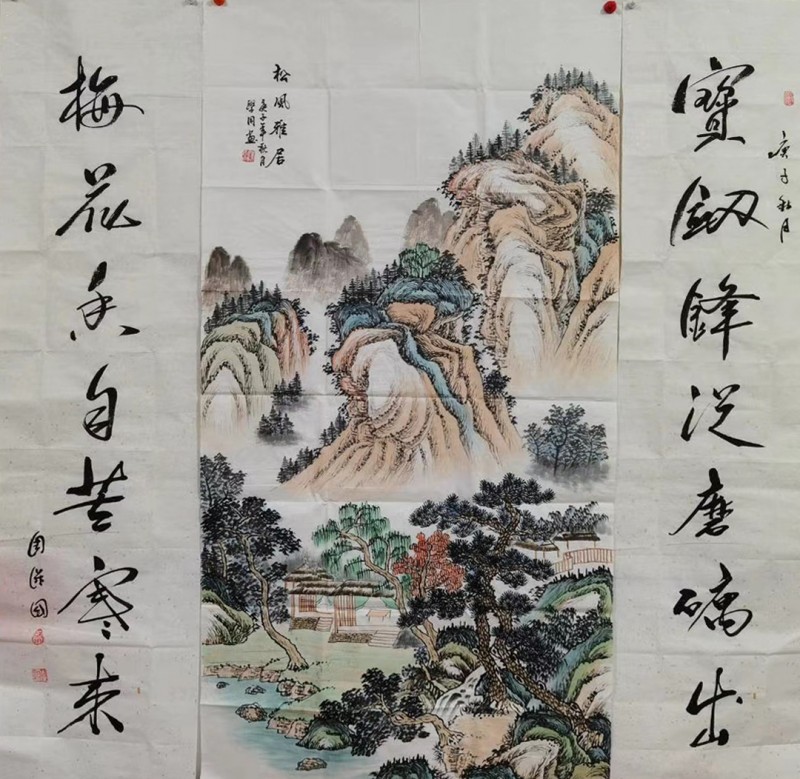 庚子秋月
寶釼鋒從磨礪出
松風雅居
庚子年秋月
梅花香自苦寒来